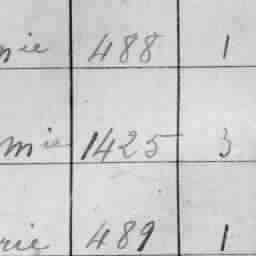 nie 488 1
mie 1425 3
rie 489 1